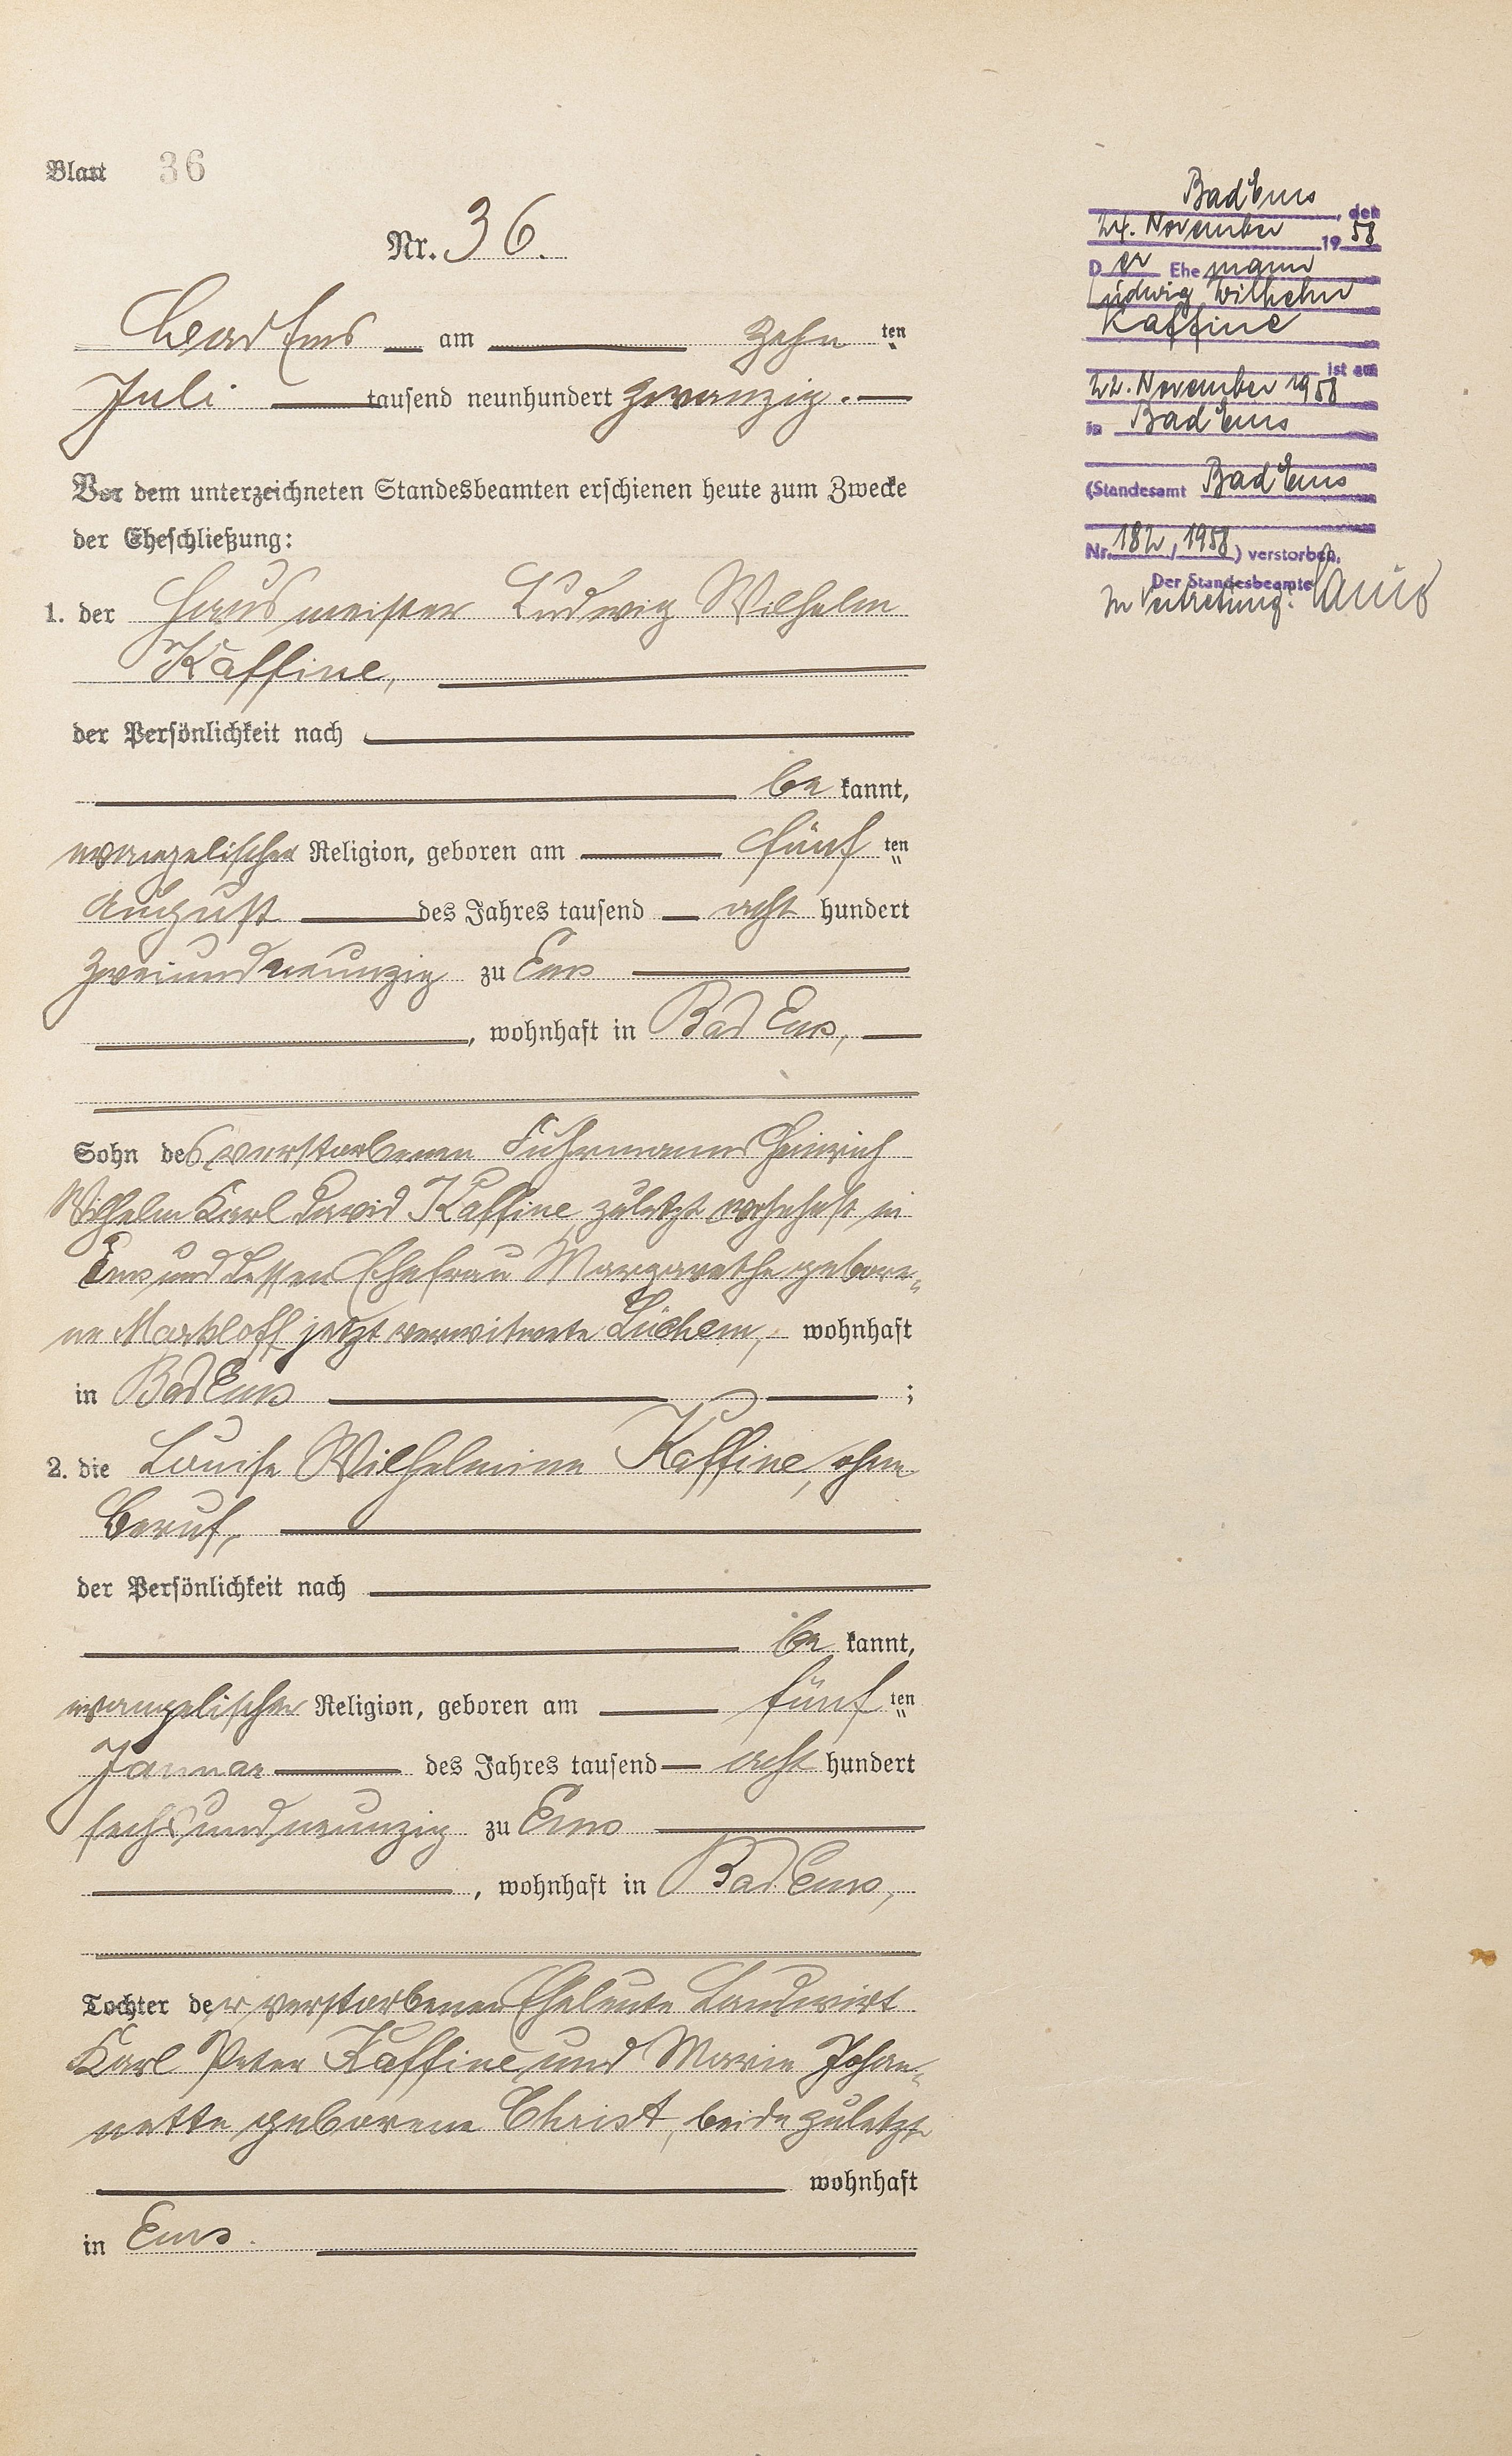 Blatt 36
Nr. 36.
Bad Ems am zehn ten
Juli tausend neunhundert zwanzig.
Vor dem unterzeichneten Standesbeamten erschienen heute zum Zwecke
der Eheschließung:
1. der Hausmeister Ludwig Wilhelm
Kaffine,
der Persönlichkeit nach
be kannt,
evangelischer Religion, geboren am fünf ten
August des Jahres tausend acht hundert
zweiundneunzig zu Ems
, wohnhaft in Bad Ems,
Sohn des verstorbenen Fuhrmanns Heinrich
Wilhelm Karl David Kaffine zuletzt wohnhaft in
Ems und dessen Ehefrau Margarethe gebore-
ne Markloff jetzt verwitwete Lüchem, wohnhaft
in Bad Ems ;
2. die Louise Wilhelmine Kaffine, ohne
Beruf,
der Persönlichkeit nach
be kannt,
evangelischer Religion, geboren am fünf ten
Januar des Jahres tausend acht hundert
sechsundneunzig zu Ems
, wohnhaft in Bad Ems,
Tochter der verstorbenen Eheleute Landwirt
Karl Peter Kaffine und Marie Johan-
nette geborene Christ, beide zuletzt
wohnhaft
in Ems.
Bad Ems, den
24. November 1958
Der Ehemann
Ludwig Wilhelm
Kaffine
ist am
22. November 1958
in Bad Ems
(Standesamt Bad Ems
Nr. 182/1958) verstorben.
Der Standesbeamte
In Vertretung: